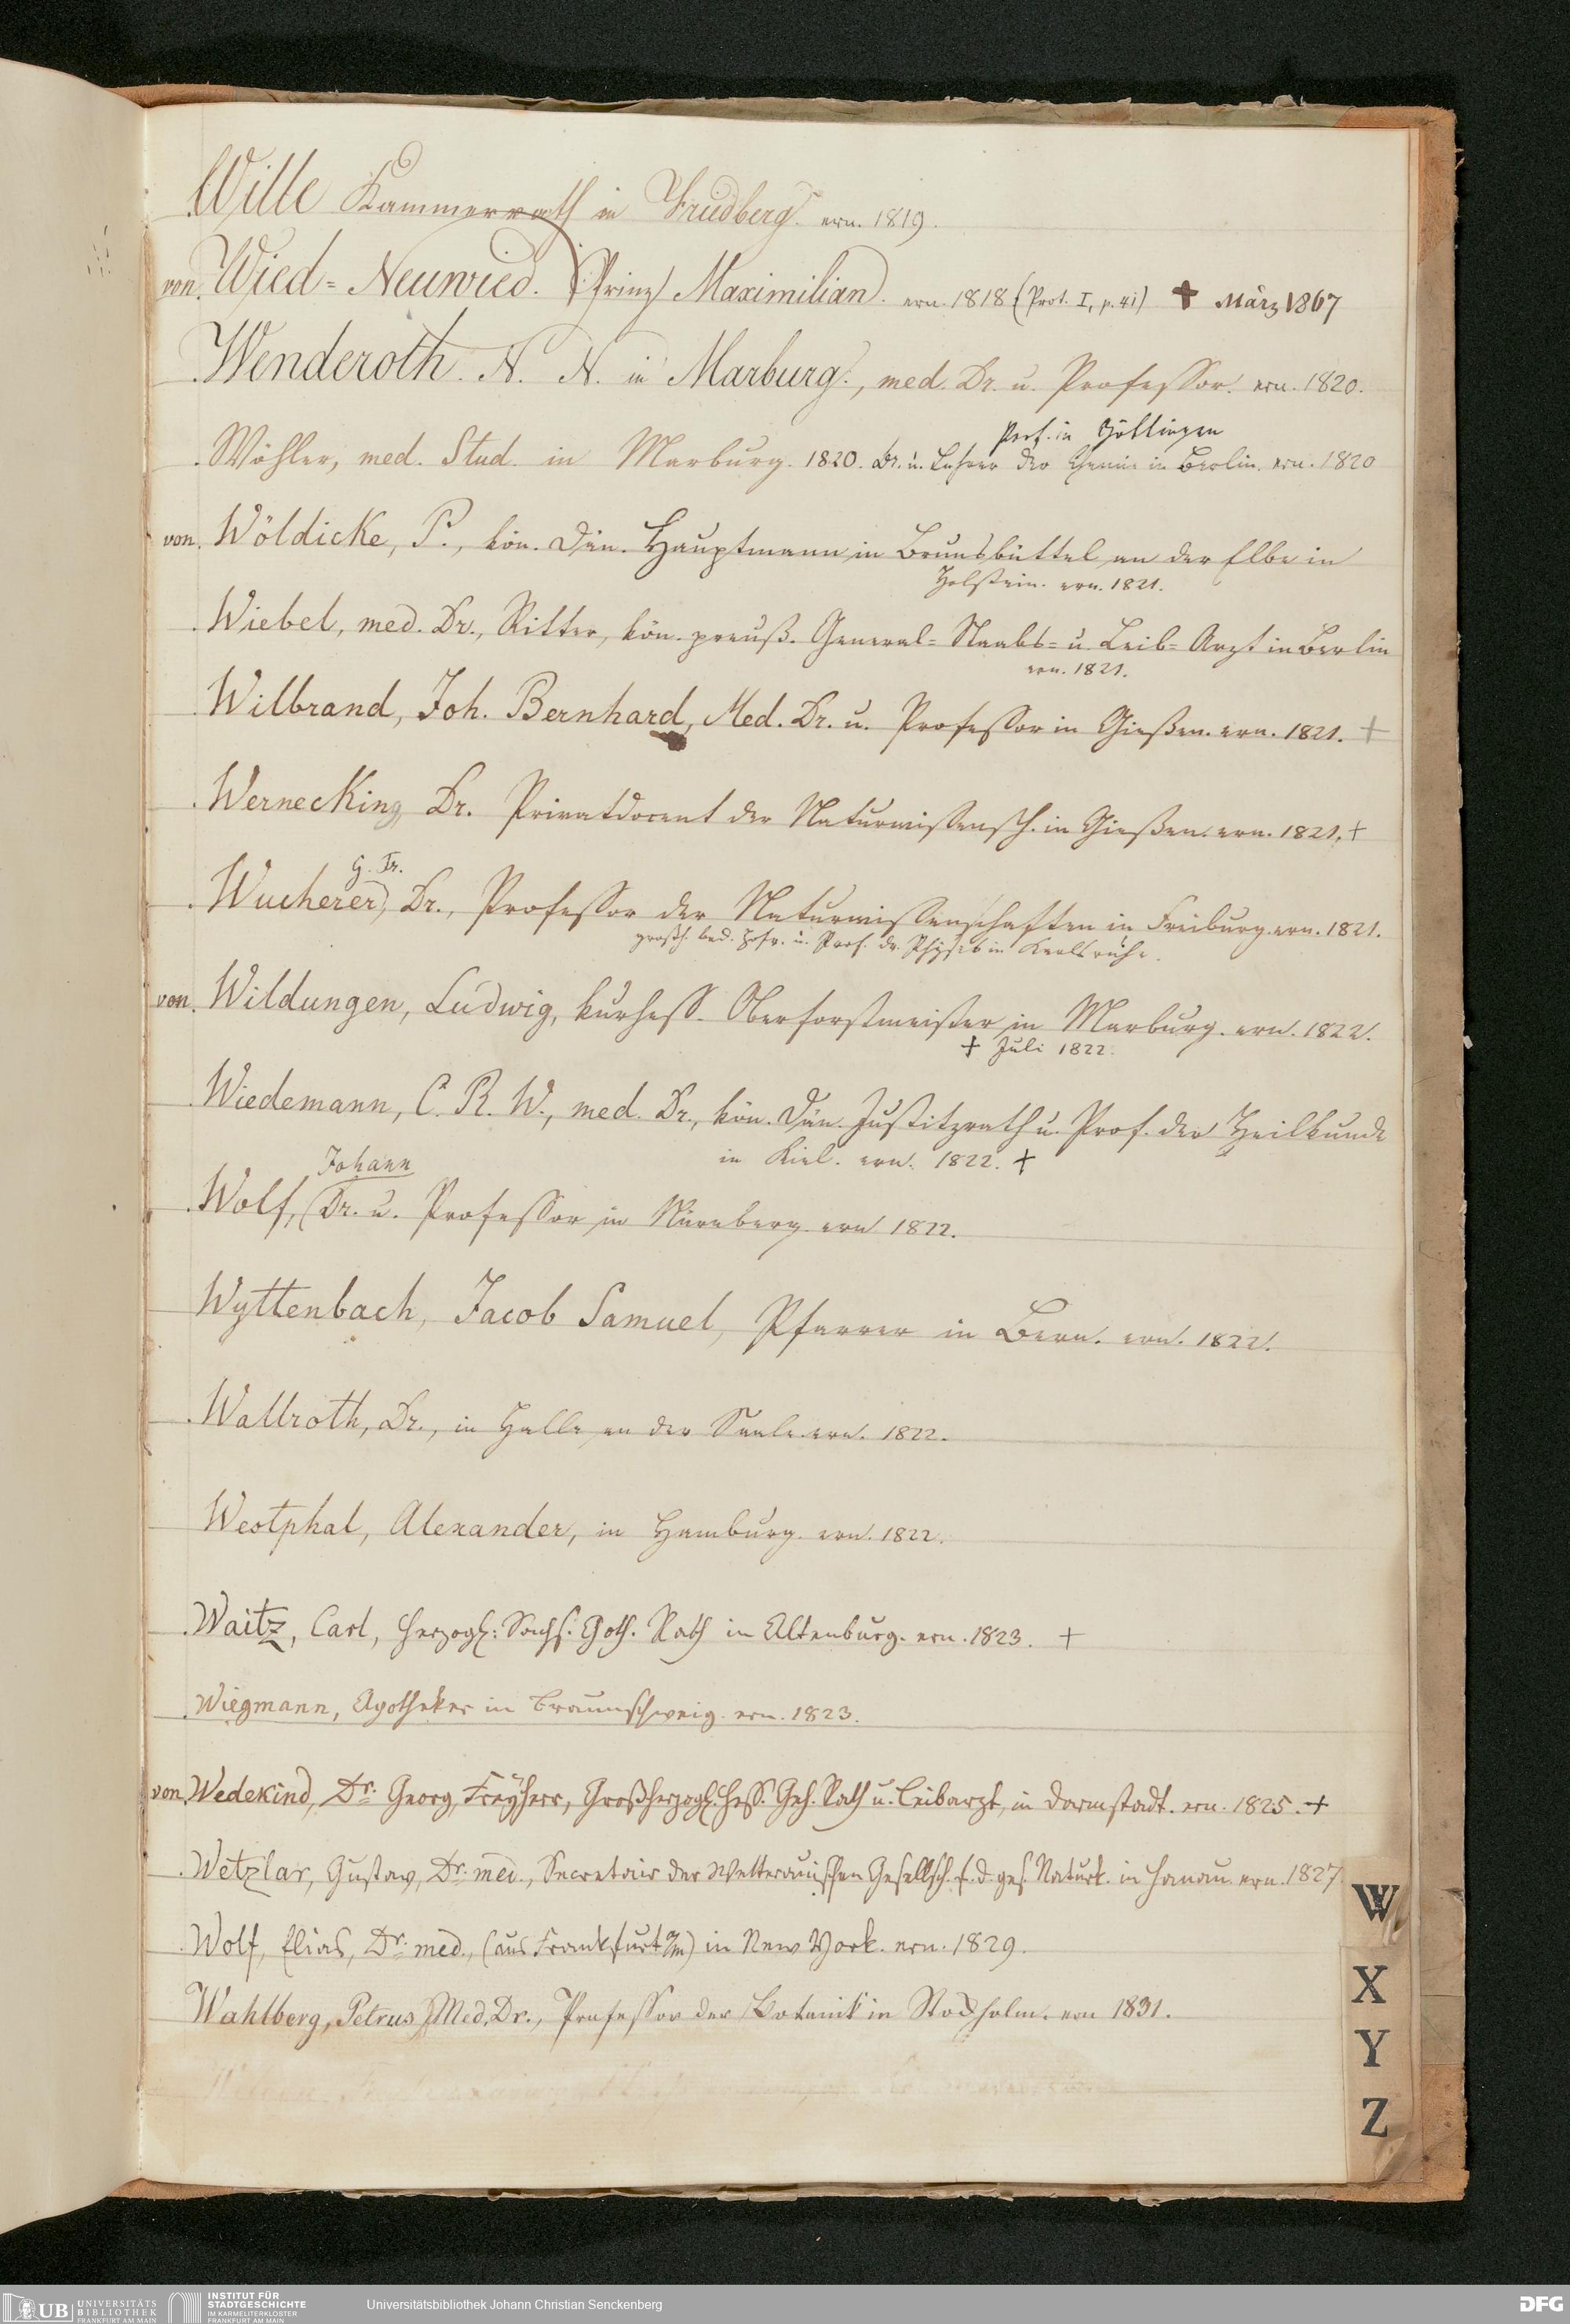 Wille Kammerrath in Friedberg. ern. 1819.
von Wied=Neuwied. Prinz Maximilian. ern. 1818 (Prot. I, p. 41) ✝ März 1867
Wenderoth. N. N. in Marburg., med. Dr. u. Professor. ern. 1820.
Prof. in Göttingen
Wöhler, med. Stud. in Marburg. 1820. Dr. u. Lehrer der Chemie in Berlin. ern. 1820
von Wöldicke, P., kön. Dän. Hauptmann in Brunsbüttel an der Elbe in
Holstein. ern. 1821.
Wiebel, med. Dr., Ritter, kön. preuß. General=Staabs= u. Leib=Arzt in Berlin
ern. 1821.
Wilbrand, Joh. Bernhard, Med. Dr. u. Professor in Gießen. ern. 1821. +
Wernecking, Dr. Privatdocent der Naturwissensch. in Gießen. ern. 1821. +
G. Fr.
Wucherer, Dr., Professor der Naturwissenschaften in Freiburg. ern. 1821.
großh. bad. Hofr. u. Prof. dr. Physik in Karlsruhe.
von Wildungen, Ludwig, kurhess. Oberforstmeister in Marburg. ern. 1822.
+ Juli 1822.
Wiedemann, C. R. W., med. Dr., kön. Dän. Justitzrath u. Prof. der Heilkunde
in Kiel. ern. 1822. +
Johann
Wolf, Dr. u. Professor in Nürnberg. ern. 1822.
Wyttenbach, Jacob Samuel, Pfarrer in Bern. ern. 1822.
Wallroth, Dr., in Halle an der Saale. ern. 1822.
Westphal, Alexander, in Hamburg. ern. 1822.
Waitz, Carl, Herzogl: Sachs. Goth. Rath in Altenburg. ern. 1823. +
Wiegmann, Apotheker in Braunschweig. ern. 1823.
von Wedekind, Dr. Georg, Freyherr, Großherzogl. Hess. Geh. Rath u. Leibarzt, in Darmstadt. ern. 1825. +
Wetzlar, Gustav, Dr. med., Secretair der Wetterauischen Gesellsch. f. d. ges. Naturk. in Hanau. ern. 1827
Wolf, Elias, Dr. med., (aus Frankfurt a/m) in New York. ern. 1829.
Wahlberg, Petrus, Med. Dr., Professor der Botanik in Stockholm. ern 1831.
W
X
Y
Z
UB UNIVERSITÄTS
BIBLIOTHEK
FRANKFURT AM MAIN
INSTITUT FÜR
STADTGESCHICHTE
IM KARMELITERKLOSTER
FRANKFURT AM MAIN
Universitätsbibliothek Johann Christian Senckenberg
DFG